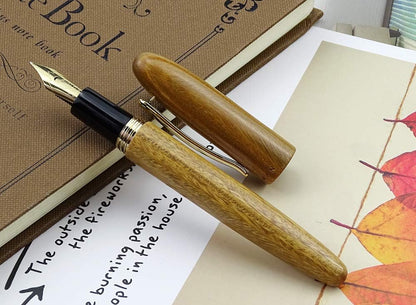 Book
note book
The outside
the fireworks
e burning passion,
ople in the house